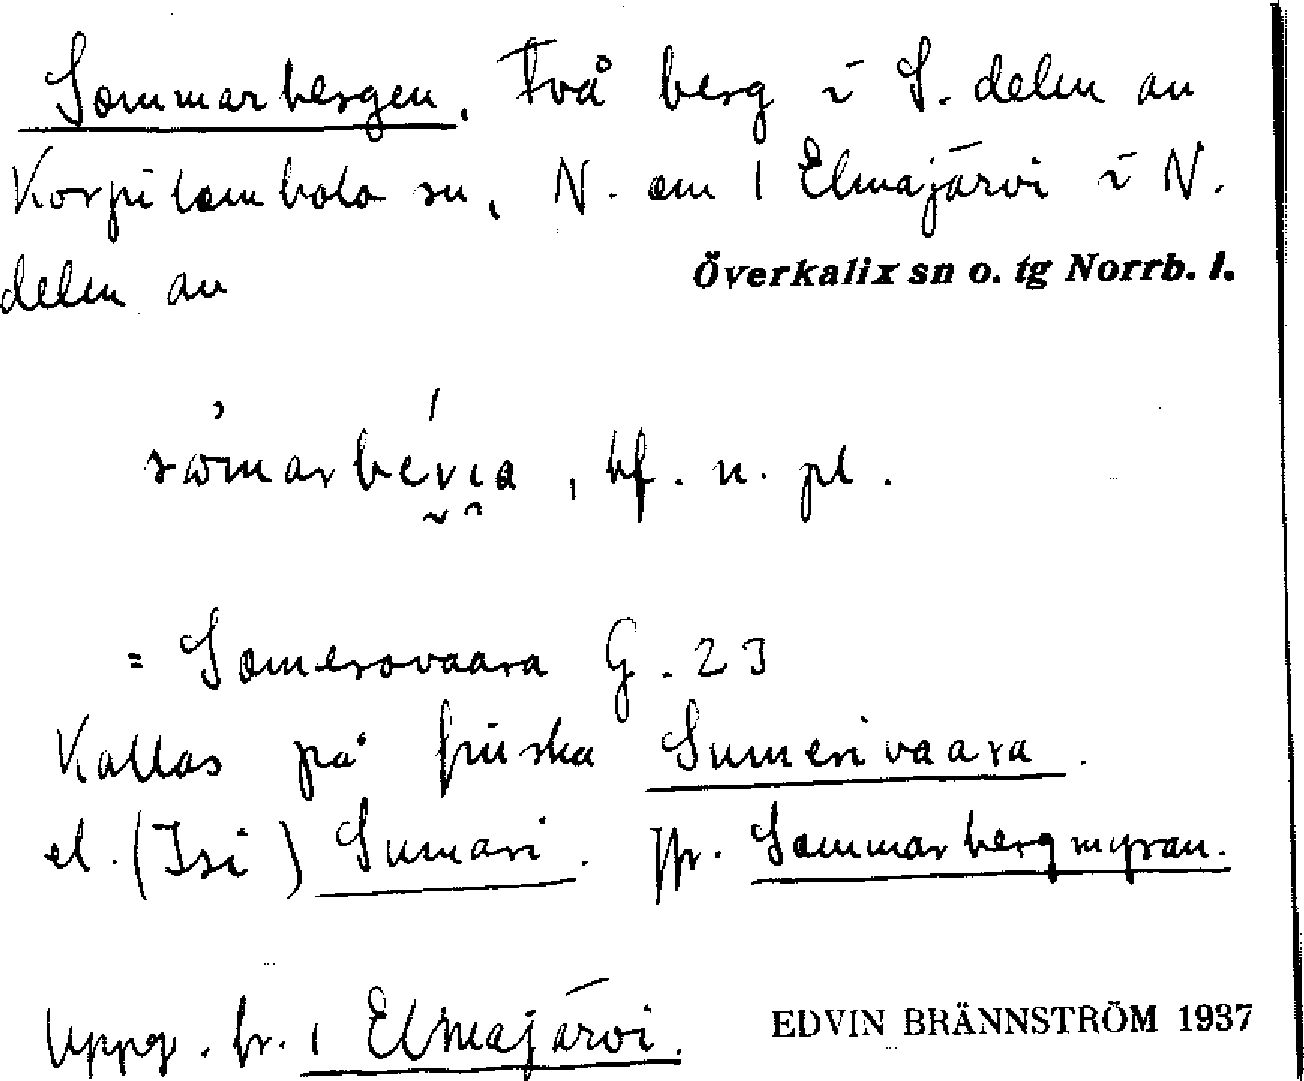 Sommarbergen. Två berg i S. delen av
Korpilombolo sn, N. om 1 Elmajärvi i N.
delen av Överkalix sn o. tg Norrb. l.
bf. n. pl.
= Somerovaara G. 23
Kallas på finska Sumerivaara.
el. (Isi) Sumari. Jfr. Sommarbergmyran.
Uppg. fr. 1 Elmajärvi.
EDVIN BRÄNNSTRÖM 1937